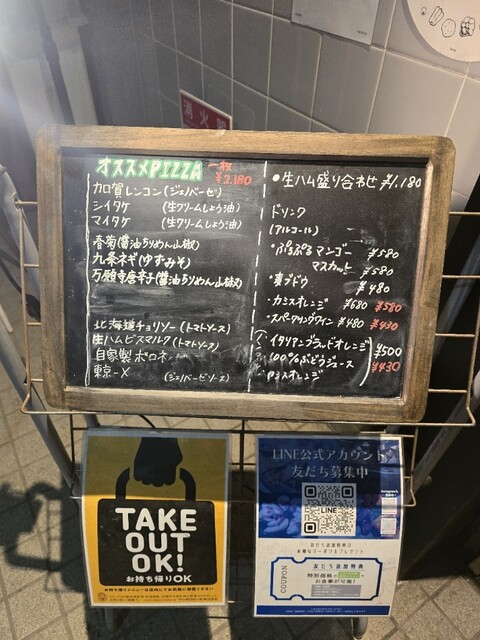 消火器
オススメPIZZA 一枚 ¥2.180
加賀レンコン(ジェノベーゼ)
シイタケ (生クリームしょう油)
マイタケ (生クリームしょう油)
春菊(醤油ちりめん山椒)
九条ネギ(ゆずみそ)
万願寺唐辛子(醤油ちりめん山椒)
北海道チョリソー(トマトソース)
生ハムビスマルク(トマトソース)
自家製ボロネーゼ
東京-X (ジェノベーゼソース)
・生ハム盛り合わせ ¥1.180
ドリンク
(アルコール)
・ぷるぷるマンゴー ¥580
マスカット ¥580
ブドウ ¥480
・カシスオレンジ ¥680 ¥580
・スパークリングワイン ¥480 ¥430
・イタリアンブラッドオレンジ
・100%ぶどうジュース
オレンジ
¥500
¥430
TAKE
OUT
OK!
お持ち帰りOK
LINE公式アカウント
友だち募集中
LINE
友だち追加特典は
COUPON
友だち追加特典
特別価格で
お食事が可能!